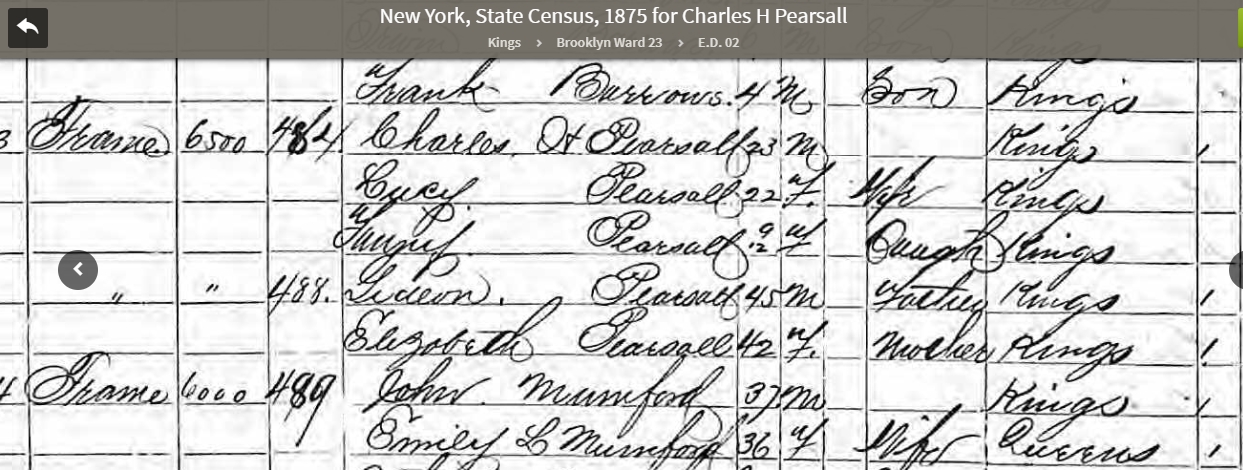 New York, State Census, 1875 for Charles H Pearsall
Kings > Brooklyn Ward 23 > E.D. 02
Frank Burrows. 4 M Son Kings
3 Frame 6500 Charles H Pearsall 23 M Kings 1
Lucy Pearsall 22 F. Wife Kings
Pearsall 9/12 F Daugh Kings
" " 488. Gideon. Pearsall 45 M Father Kings 1
Elizabeth Pearsall 42 F. Mother Kings 1
4 Frame 6000 489 John. Mumford 37 M Kings 1
Emily L Mumford 36 F Wife Queens 1